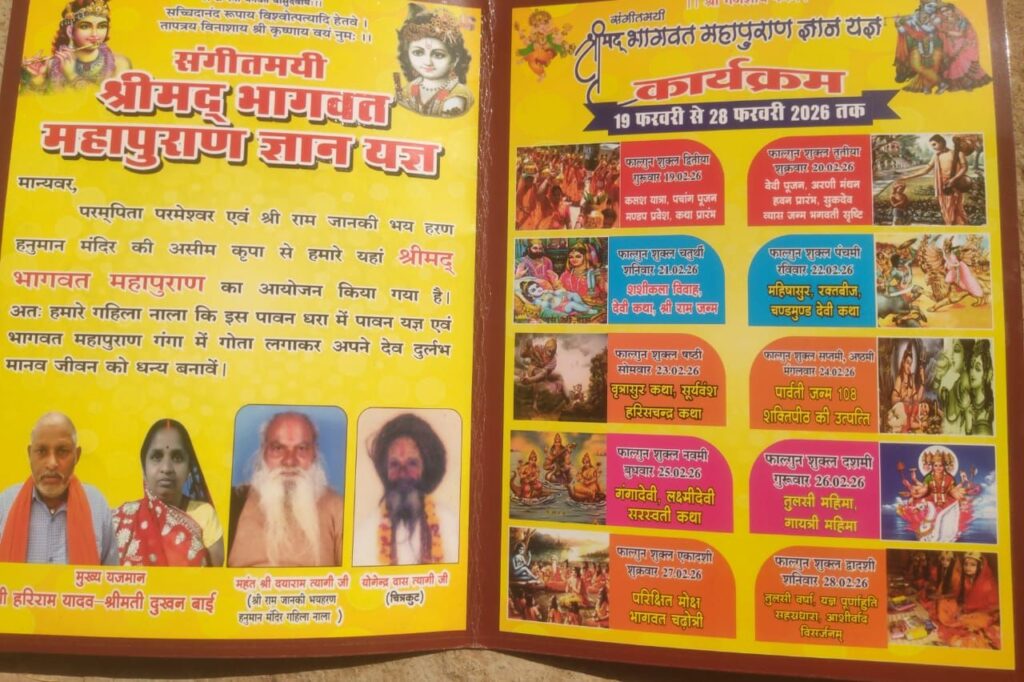 सच्चिदानंद रूपाय विश्वोत्पत्यादि हेतवे ।
तापत्रय विनाशाय श्री कृष्णाय वयं नुमः ।।
संगीतमयी
श्रीमद् भागवत
महापुराण ज्ञान यज्ञ
मान्यवर,
परमपिता परमेश्वर एवं श्री राम जानकी भय हरण
हनुमान मंदिर की असीम कृपा से हमारे यहां श्रीमद्
भागवत महापुराण का आयोजन किया गया है।
अतः हमारे गहिला नाला कि इस पावन धरा में पावन यज्ञ एवं
भागवत महापुराण गंगा में गोता लगाकर अपने देव दुर्लभ
मानव जीवन को धन्य बनावें।
मुख्य यजमान
हरिराम यादव-श्रीमती दुखन बाई
महंत श्री दयाराम त्यागी जी
(श्री राम जानकी भयहरण
हनुमान मंदिर गहिला नाला )
योगेन्द्र दास त्यागी जी
(चित्रकुट)
संगीतमयी
श्रीमद् भागवत महापुराण ज्ञान यज्ञ
कार्यक्रम
19 फरवरी से 28 फरवरी 2026 तक
फाल्गुन शुक्ल द्वितीया
गुरूवार 19.02.26
कलश यात्रा, पचांग पूजन
मण्डप प्रवेश, कथा प्रारंभ
फाल्गुन शुक्ल तृतीया
शुक्रवार 20.02.26
वेदी पूजन, अरणी मंथन
हवन प्रारंभ, सुकदेव
व्यास जन्म भगवती सृष्टि
फाल्गुन शुक्ल चतुर्थी
शनिवार 21.02.26
शशीकला विवाह,
देवी कथा, श्री राम जन्म
फाल्गुन शुक्ल पंचमी
रविवार 22.02.26
महिषासुर, रक्तबीज,
चण्डमुण्ड देवी कथा
फाल्गुन शुक्ल षष्ठी
सोमवार 23.02.26
वृत्रासुर कथा, सूर्यवंश
हरिसचन्द्र कथा
फाल्गुन शुक्ल सप्तमी, अष्ठमी
मंगलवार 24.02.26
पार्वती जन्म 108
शक्तिपीठ की उत्पत्ति
फाल्गुन शुक्ल नवमी
बुधवार 25.02.26
गंगादेवी, लक्ष्मीदेवी
सरस्वती कथा
फाल्गुन शुक्ल दशमी
गुरूवार 26.02.26
तुलसी महिमा,
गायत्री महिमा
फाल्गुन शुक्ल एकादशी
शुक्रवार 27.02.26
परिक्षित मोक्ष
भागवत चढ़ोत्री
फाल्गुन शुक्ल द्वादशी
शनिवार 28.02.26
तुलसी वर्षा, यज्ञ पूर्णाहुति
सहस्रधारा, आशीर्वाद
विसर्जनम्